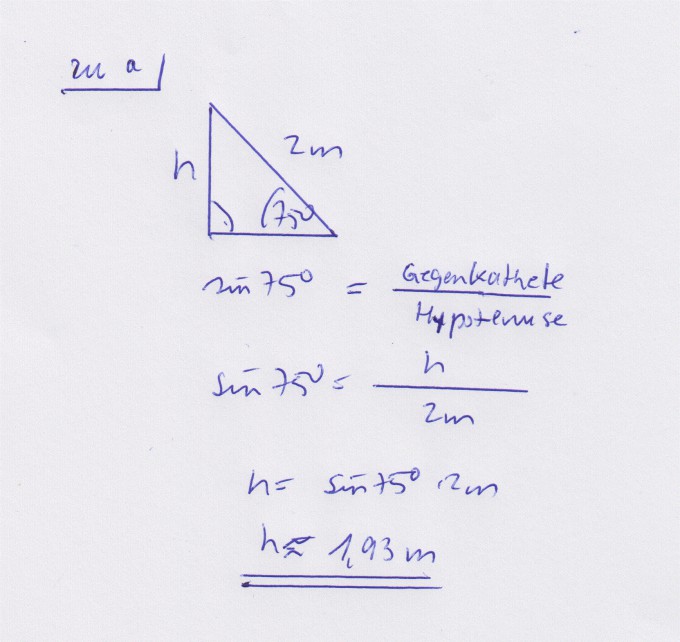 zu a
h
2m
75°
sin 75° = Gegenkathete
Hypotenuse
sin 75° = h
2m
h = sin 75° · 2m
h ≈ 1,93 m